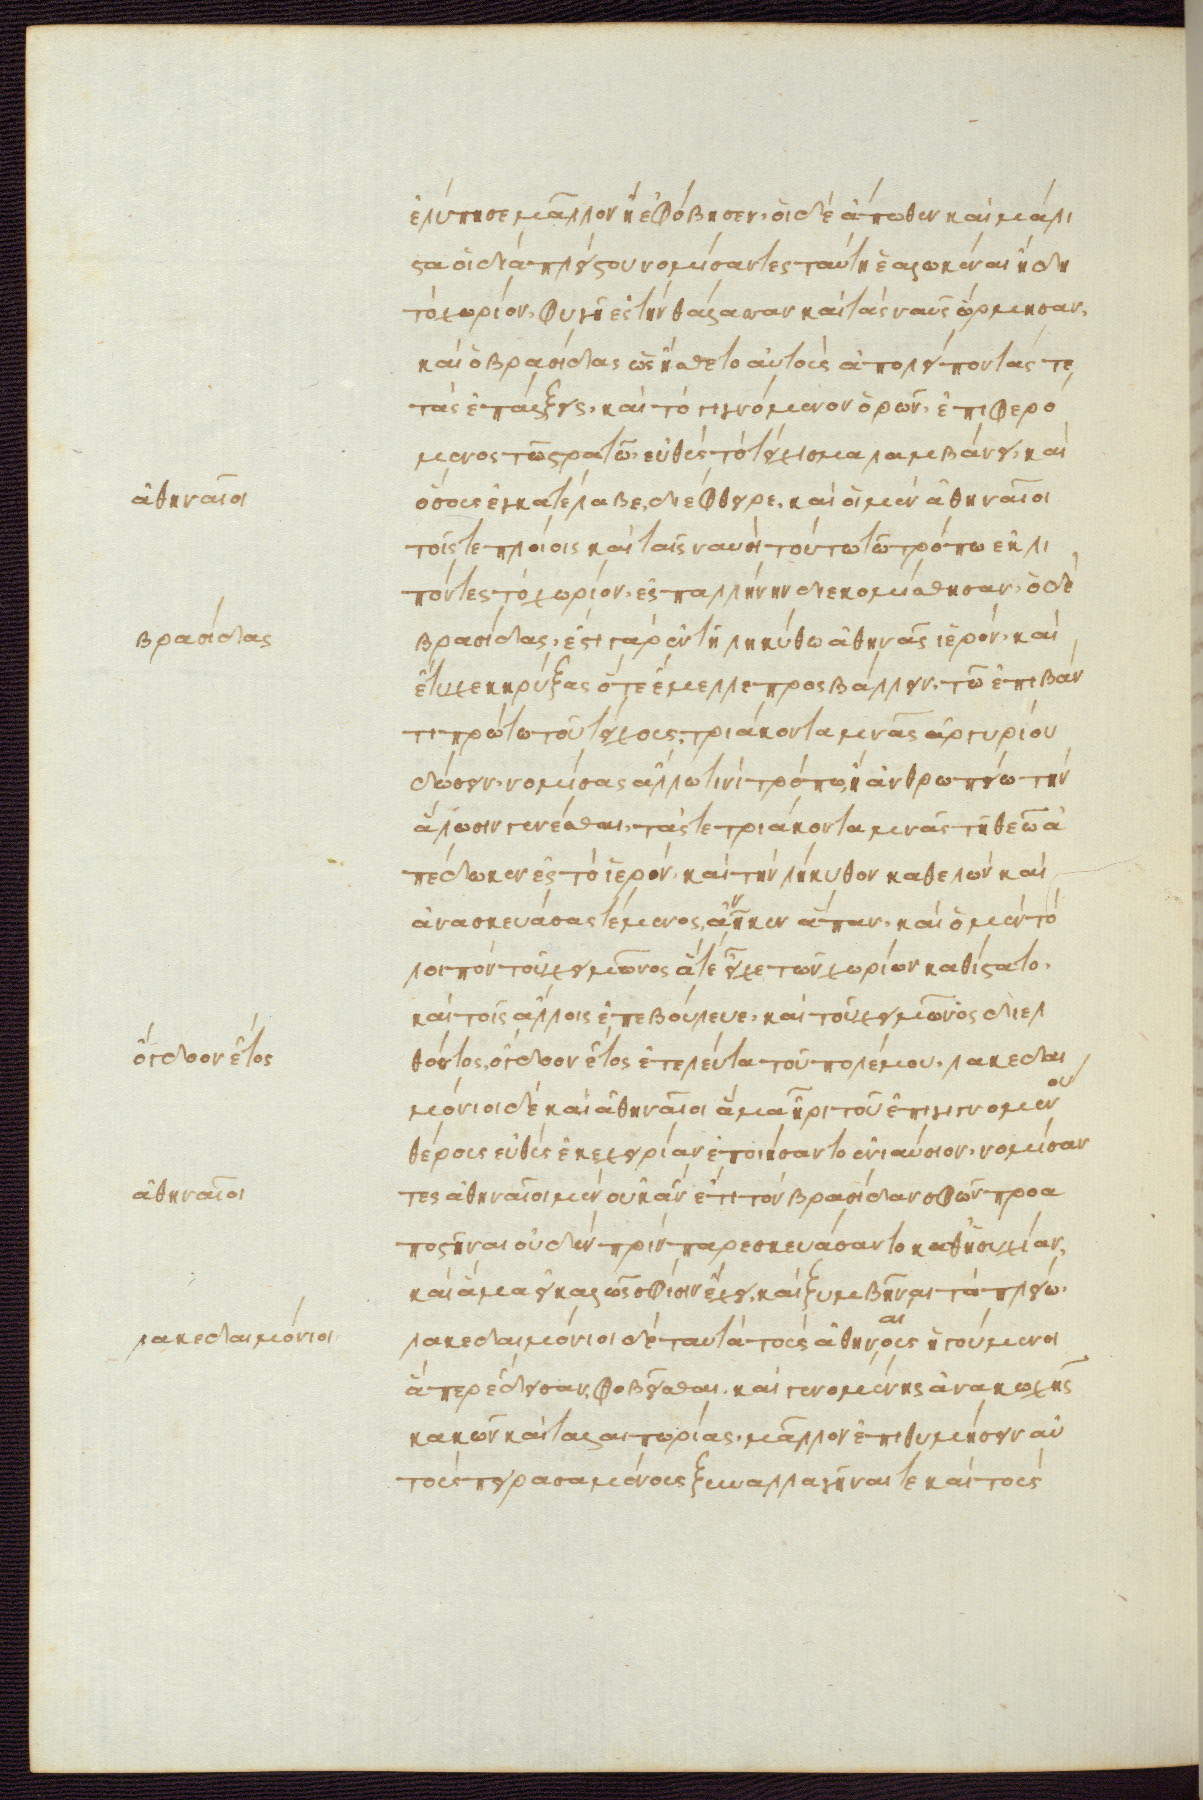 ἐλύπησε μᾶλλον ἢ ἐφόβησεν, οἱ δὲ ἄπωθεν καὶ μάλι
στα οἱ διὰ πλείστου νομίσαντες ταύτη ἑαλωκέναι ἤδη
τὸ χωρίον, φυγῆ ἐς τὴν θάλασσαν καὶ τὰς ναῦς ὥρμησαν,
καὶ ὁ βρασίδας ὡς ἤσθετο αὐτοὺς ἀπολείποντάς τε
τὰς ἐπάλξεις, καὶ τὸ γιγνόμενον ὁρῶν, ἐπιφερό
μενος τῶ στρατῶ, εὐθὺς τὸ τείχισμα λαμβάνει, καὶ
ἀθηναῖοι
ὅσους ἐγκατέλαβε, διέφθειρε, καὶ οἱ μὲν ἀθηναῖοι
τοῖς τε πλοίοις καὶ ταῖς ναυσὶ τούτω τῶ τρόπω ἐκλι
πόντες τὸ χωρίον, ἐς παλλήνην διεκομίσθησαν, ὁ δὲ
βρασίδας
βρασίδας, ἔστι γὰρ ἐν τῆ ληκύθω ἀθηνᾶς ἱερόν, καὶ
ἔτυχε κηρύξας ὅτε ἔμελλε προσβάλλειν, τῶ ἐπιβάν
τι πρώτω τοῦ τείχους, τριάκοντα μνᾶς ἀργυρίου
δώσειν, νομίσας ἄλλω τινὶ τρόπω ἢ ἀνθρωπείω τὴν
ἅλωσιν γενέσθαι, τάς τε τριάκοντα μνᾶς τῆ θεῶ ἀ
πέδωκεν ἐς τὸ ἱερόν, καὶ τὴν λήκυθον καθελὼν καὶ
ἀνασκευάσας τέμενος, ἀνῆκεν ἅπαν, καὶ ὁ μὲν τὸ
λοιπὸν τοῦ χειμῶνος ἅ τε εἶχε τῶν χωρίων καθίστατο,
καὶ τοῖς ἄλλοις ἐπεβούλευε, καὶ τοῦ χειμῶνος διελ
ὄγδοον ἔτος
θόντος, ὄγδοον ἔτος ἐτελεύτα τοῦ πολέμου, λακεδαι
μόνιοι δὲ καὶ ἀθηναῖοι ἅμα ἦρι τοῦ ἐπιγιγνομένου
θέρους εὐθὺς ἐκεχειρίαν ἐποιήσαντο ἐνιαύσιον, νομίσαν
ἀθηναῖοι
τες ἀθηναῖοι μὲν οὐκ ἂν ἔτι τὸν βρασίδαν σφῶν προσα
ποστῆναι οὐδὲν πρὶν παρεσκευάσαντο καθ' ἡσυχίαν,
καὶ ἅμα εἰ καλῶς σφίσιν ἔχει, καὶ ξυμβῆναι τὰ πλείω,
λακεδαιμόνιοι
λακεδαιμόνιοι δὲ ταῦτα τοὺς ἀθηναίους ἡγούμενοι
ἅπερ ἔδεισαν, φοβεῖσθαι, καὶ γενομένης ἀνακωχῆς
κακῶν καὶ ταλαιπωρίας, μᾶλλον ἐπιθυμήσειν αὐ
τοὺς πειρασαμένους ξυναλλαγῆναί τε καὶ τοὺς